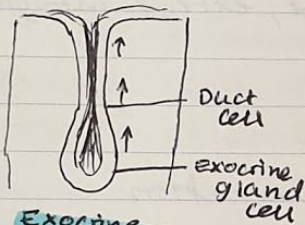 Duct
cell
exocrine
gland
cell
Exocrine